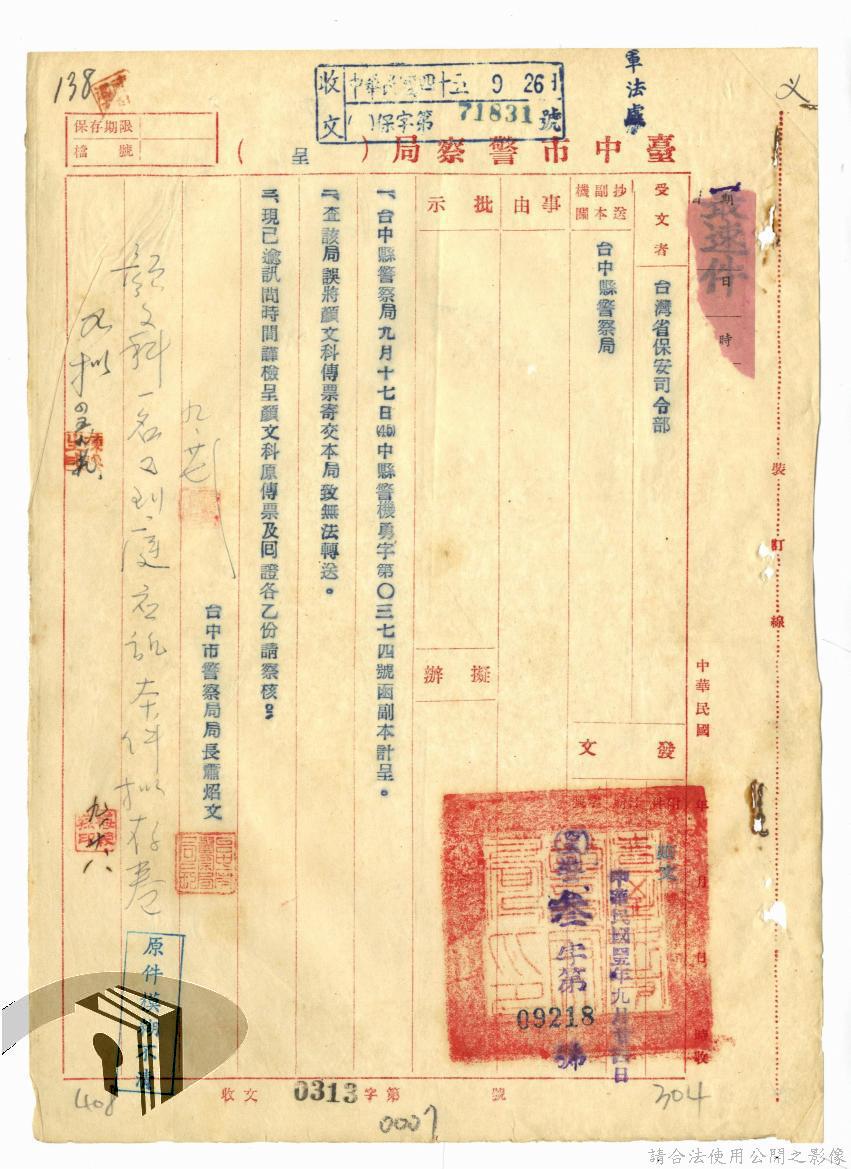 138
收文
中華民國四十五 9 26日
( )保字第 71831 號
軍法處
保存期限
檔號
臺中市警察局( 呈 )
最速件
期
日
時
裝訂線
受文者
台灣省保安司令部
抄送副本機關
台中縣警察局
事由
批示
擬辦
發文
中華民國
年
月
日
中華民國
年九月
日
叁字第
09218
號
一、台中縣警察局九月十七日(45)中縣警機勇字第〇三七四號函副本計呈。
二、查該局誤將顏文科傳票寄交本局致無法轉送。
三、現已逾訊問時間謹檢呈顏文科原傳票及回證各乙份請察核。
台中市警察局局長蕭焰文
顏文科一名不到庭應訊本件擬存卷
原件模糊不清
收文
0313
字第
號
304
408
0007
請合法使用公開之影像